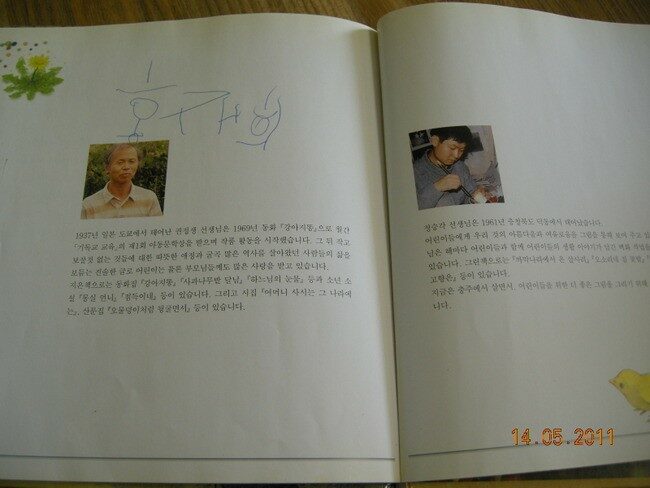 홍재희
1937년 일본 도쿄에서 태어난 권정생 선생님은 1969년 동화 『강아지똥』으로 월간
『기독교 교육』의 제1회 아동문학상을 받으며 작품 활동을 시작했습니다. 그 뒤 작고
보잘것 없는 것들에 대한 따뜻한 애정과 굴곡 많은 역사를 살아왔던 사람들의 삶을
보듬는 진솔한 글로 어린이는 물론 부모님들께도 많은 사랑을 받고 있습니다.
지은책으로는 동화집 『강아지똥』, 『사과나무밭 달님』, 『하느님의 눈물』 등과 소년 소
설 『몽실 언니』, 『점득이네』 등이 있습니다. 그리고 시집 『어머니 사시는 그 나라에
는』, 산문집 『오물덩이처럼 뒹굴면서』 등이 있습니다.
정승각 선생님은 1961년 충청북도 덕동에서 태어났습니다.
어린이들에게 우리 것의 아름다움과 여유로움을 그림을 통해 보여 주고 있
님은 해마다 어린이들과 함께 어린이들의 생활 이야기가 담긴 벽화 작업을
있습니다. 그림책으로는 『까막나라에서 온 삽사리』, 『오소리네 집 꽃밭』, 『
고향은』 등이 있습니다.
지금은 충주에서 살면서, 어린이들을 위한 더 좋은 그림을 그리기 위해
니다.
14.05.2011